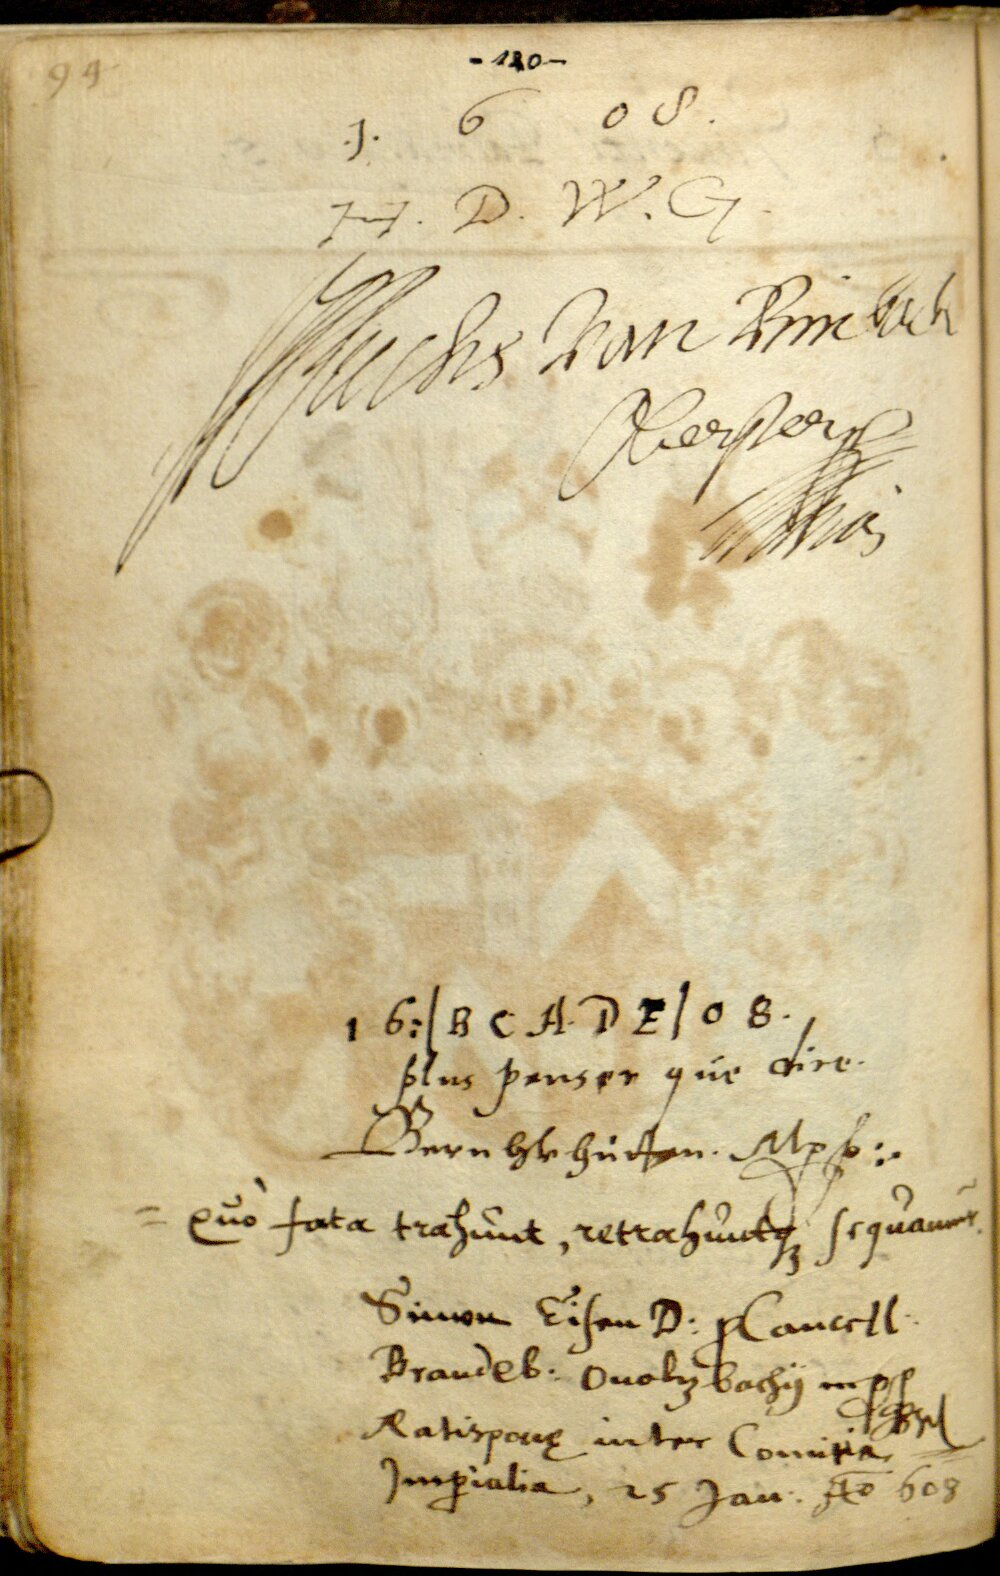 94
-120-
1. 6 0 8.
H. D. W. G.
Fuchs von Bimbach
Oberster
16:| B C A D E | 0 8.
plus penser que dire.
Bern von hutten. Mpp:
= Quò fata trahunt, retrahuntq3 sequamur.
Simon Eisen D: pCancell:
Brandeb: Onoltzbachij mpp
Ratisponę inter Comitia
Imperialia, 25 Jan: Ao 608